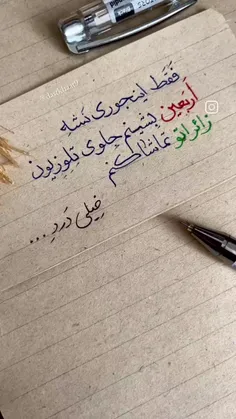 فقط اینجوری نشه
اربعین بشینم جلوی تلویزیون
زائراتو تماشا کنم
خیلی درد...